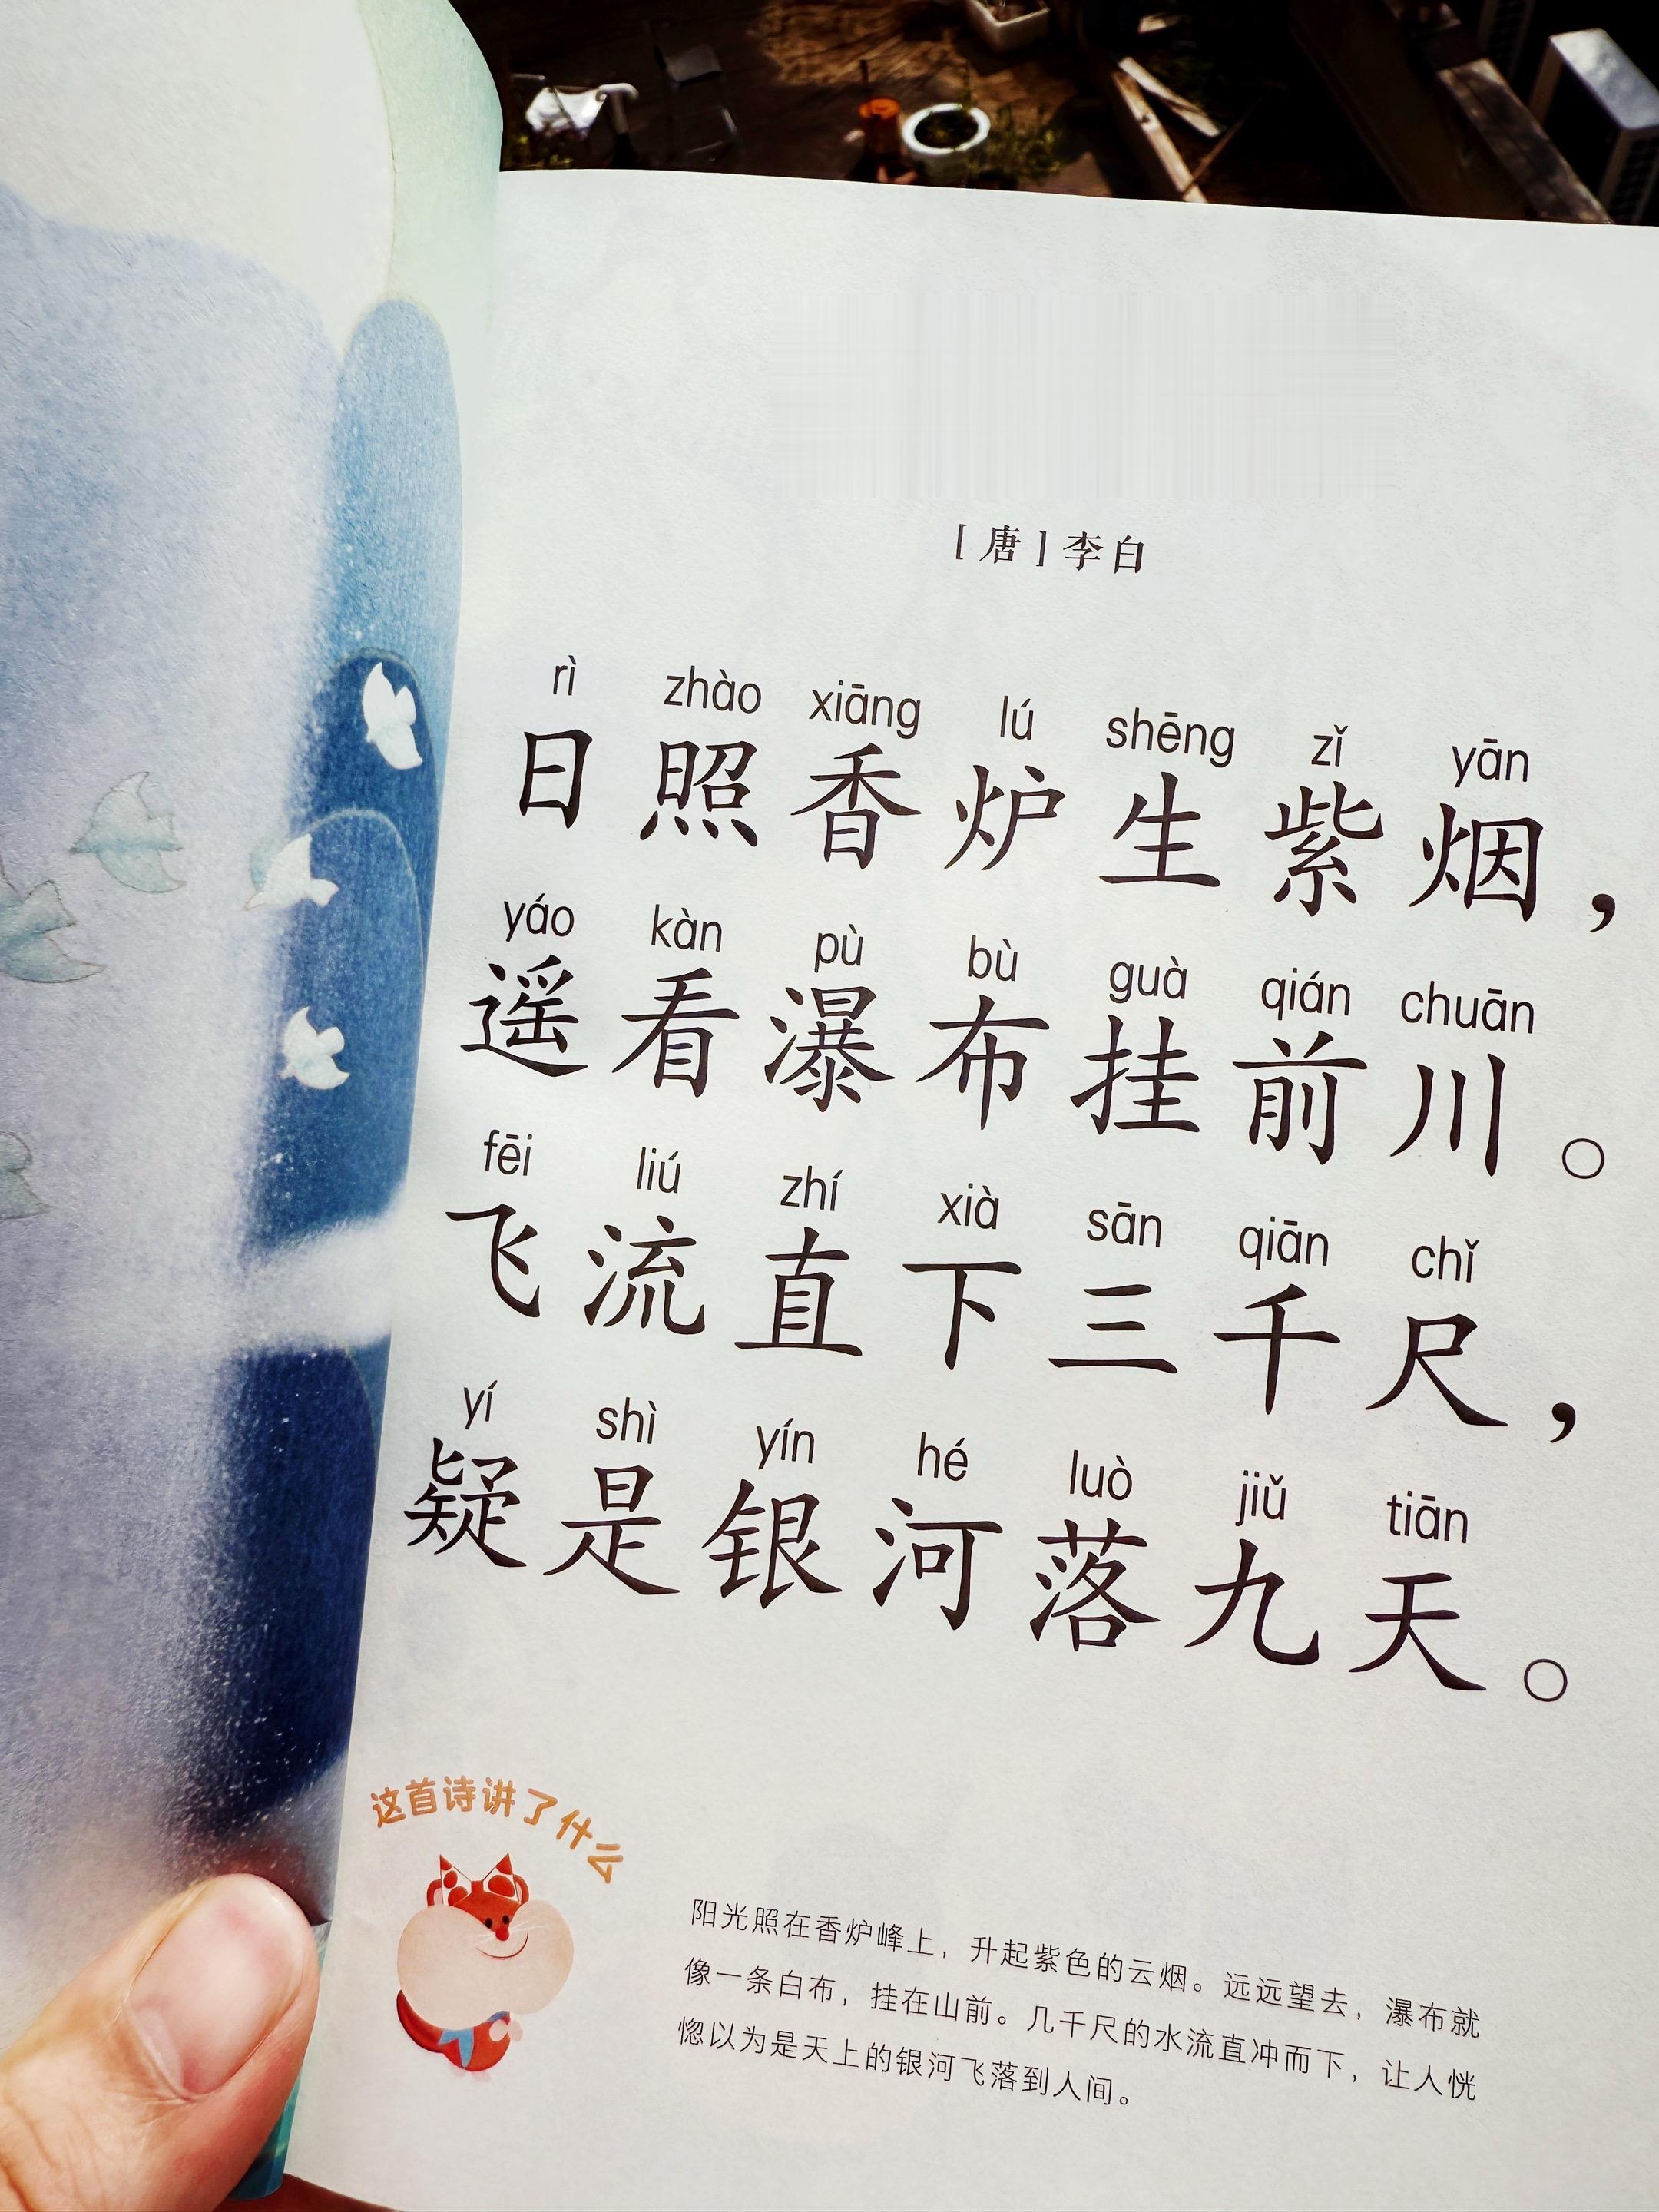 [唐]李白
rì zhào xiāng lú shēng zǐ yān
日照香炉生紫烟，
yáo kàn pù bù guà qián chuān
遥看瀑布挂前川。
fēi liú zhí xià sān qiān chǐ
飞流直下三千尺，
yí shì yín hé luò jiǔ tiān
疑是银河落九天。
这首诗讲了什么
阳光照在香炉峰上，升起紫色的云烟。远远望去，瀑布就
像一条白布，挂在山前。几千尺的水流直冲而下，让人恍
惚以为是天上的银河飞落到人间。